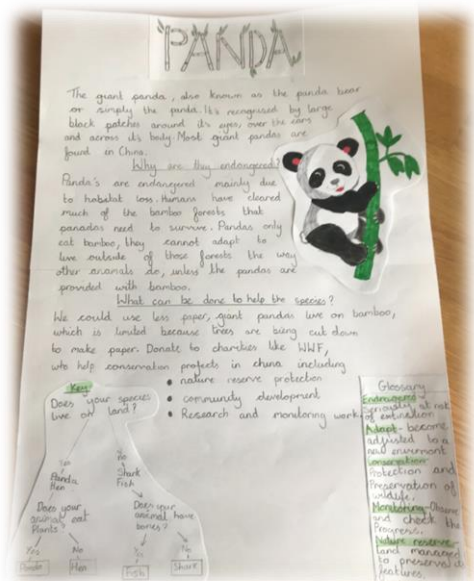 PANDA
The giant panda, also known as the panda bear
or simply the panda. It's recognised by large
black patches around it's eyes, over the ears
and across it's body. Most giant pandas are
found in China.
Why are they endangered?
Panda's are endangered mainly due
to habitat loss. Humans have cleared
much of the bamboo forests that
panadas need to survive. Pandas only
eat bamboo, they cannot adapt to
live outside of those forests the way
other animals do, unless the pandas are
provided with bamboo.
What can be done to help the species?
We could use less paper, giant pandas live on bamboo,
which is limited because trees are being cut down
to make paper. Donate to charities like WWF,
who help conservation projects in china including
• nature reserve protection
• community development
• Research and monitoring work
Key
Does your species
live on land?
Yes
Panda
Hen
No
Shark
Fish
Does your
animal eat
Plants?
Does your
animal have
bones?
Yes
No
Yes
No
Panda
Hen
Fish
Shark
Glossary
Endangered
Seriously at risk
of extinction
Adapt- become
adjusted to a
new enviroment
Conservation-
Protection and
Preservation of
wildlife.
Monitoring-Observe
and check the
Progress.
Nature reserve-
land managed
to preserve it
features.